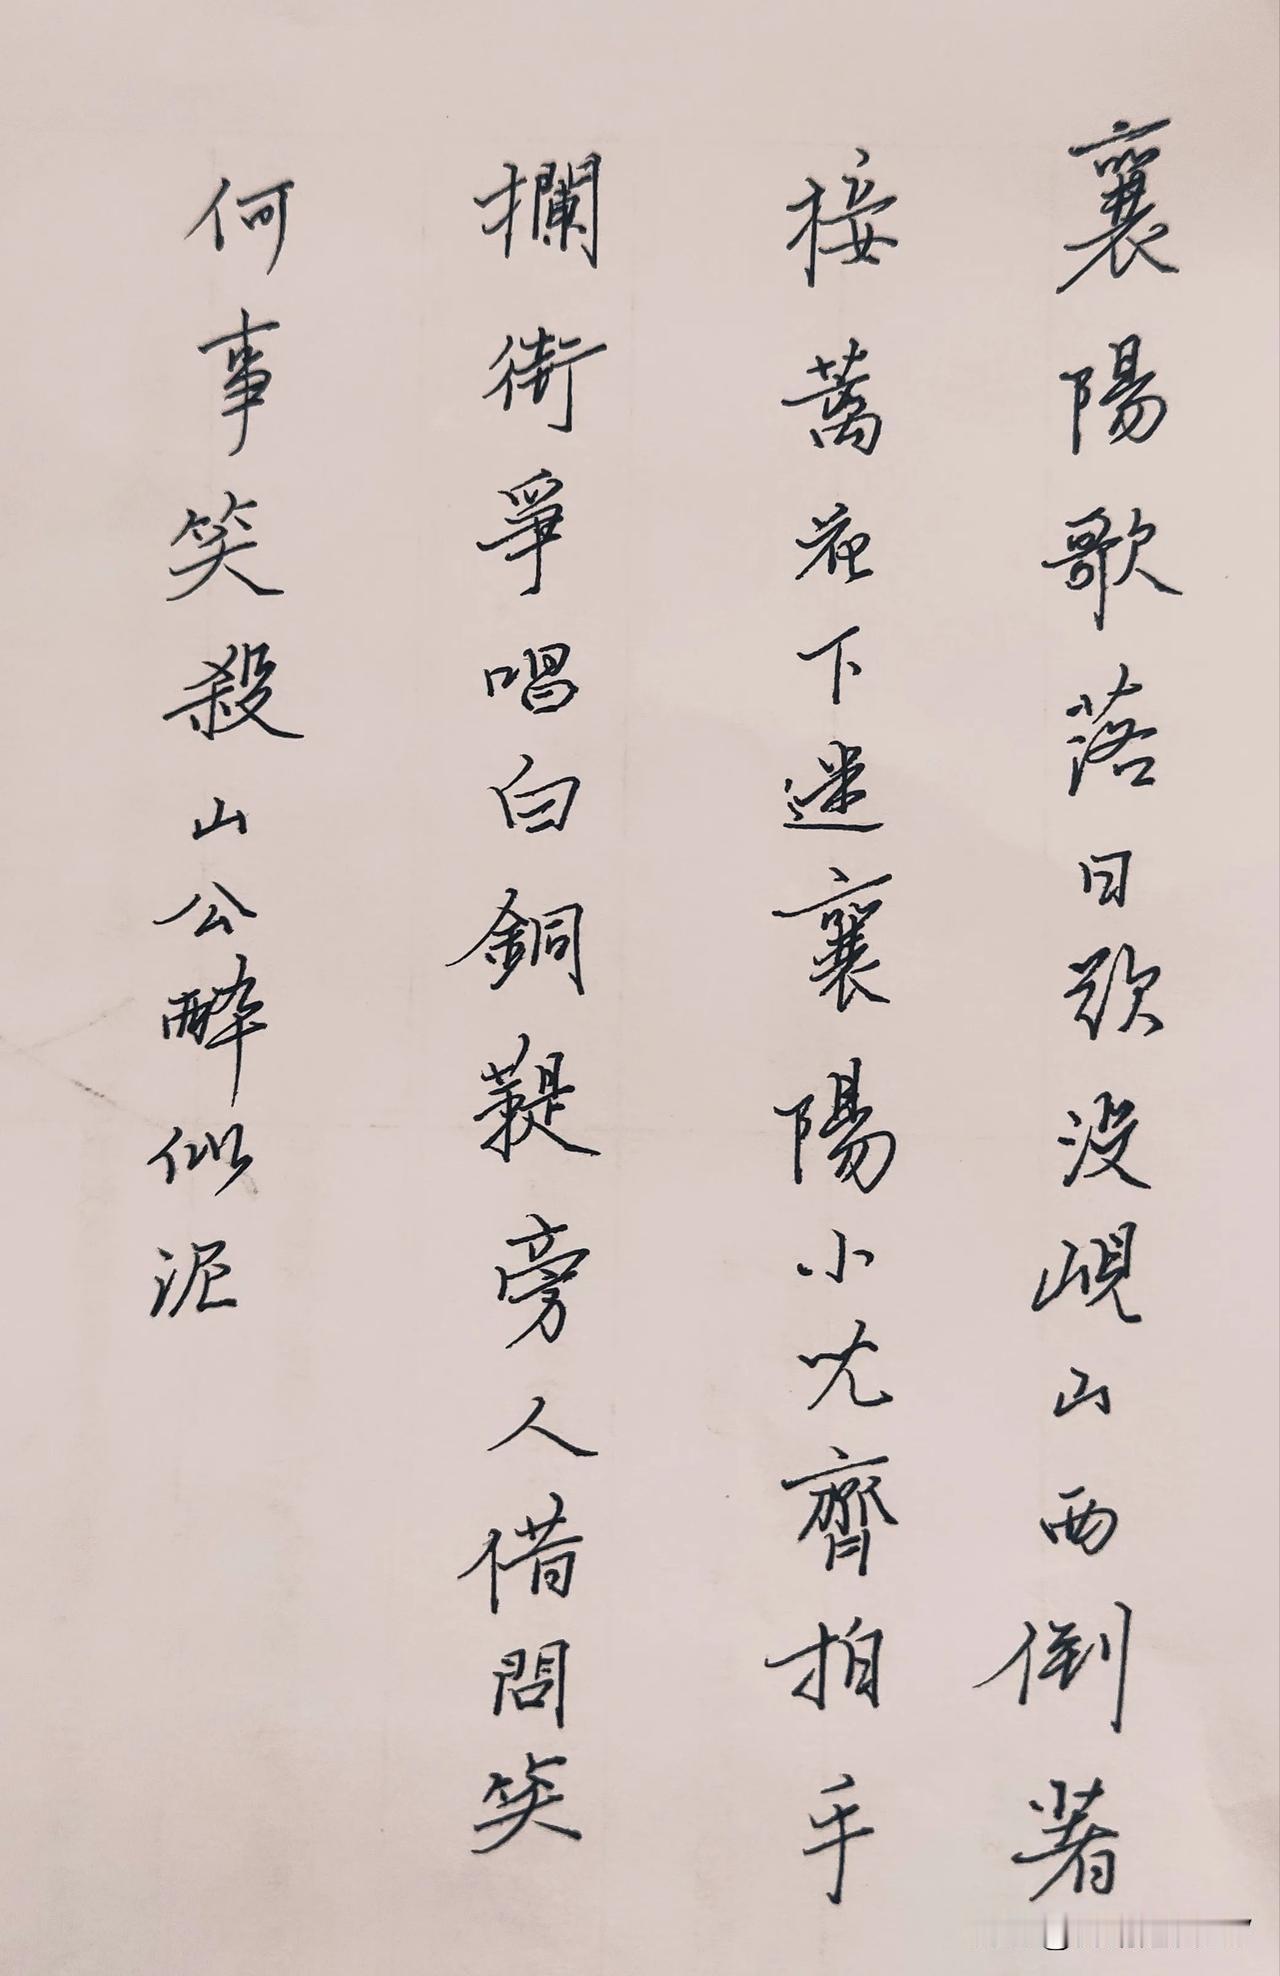 襄陽歌落日欲没峴山西倒著
接蓠花下迷襄陽小児齊拍手
攔街爭唱白銅鞮旁人借問笑
何事笑殺山公醉似泥